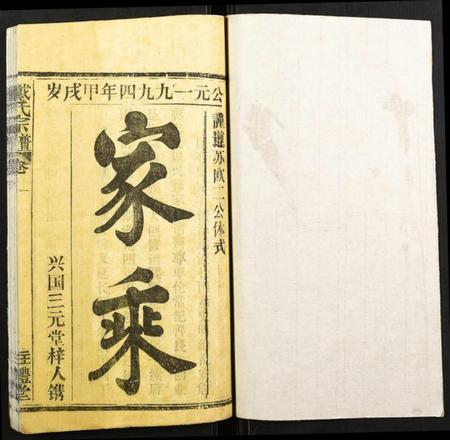 公元一九九四年甲戌岁
謹遵苏欧二公体式
家乘
兴国三元堂梓人镌
戴氏宗譜
卷一
註禮堂